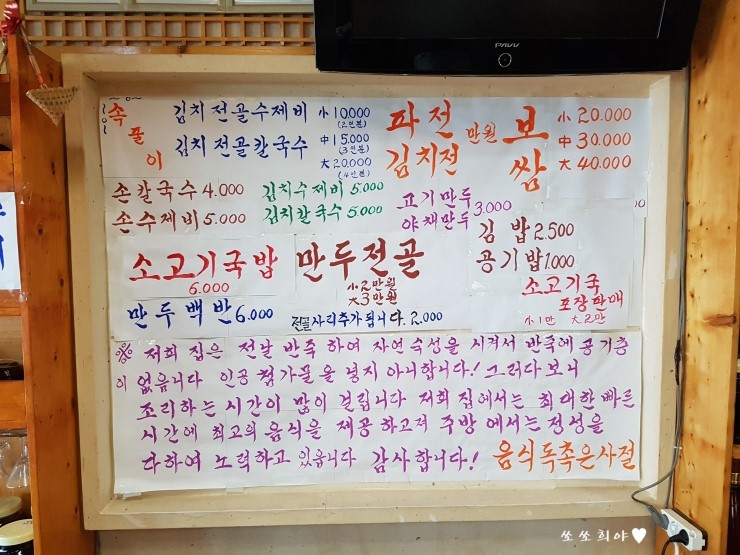 PAVV
속풀이
김치전골수제비 小 10,000
(2인분)
김치전골칼국수 中 15,000
(3인분)
大 20,000
(4인분)
파전
김치전
만원
보쌈
小 20.000
中 30.000
大 40.000
손칼국수 4.000
손수제비 5.000
김치수제비 5.000
김치칼국수 5.000
고기만두
야채만두 3.000
김밥 2.500
공기밥 1.000
소고기국밥
6.000
만두전골
小 2만원
大 3만원
소고기국
포장판매
小 1만 大 2만
만두백반 6.000
전골사리추가됩니다. 2.000
※ 저희 집은 전날 반죽 하여 자연숙성을 시켜서 반죽에 공기층
이 없읍니다 인공첨가물을 넣지 아니합니다! 그러다 보니
조리하는 시간이 많이 걸립니다 저희 집에서는 최대한 빠른
시간에 최고의 음식을 제공 하고져 주방 에서는 정성을
다하여 노력하고 있읍니다 감사합니다! 음식독촉은사절
쏘쏘희야♥